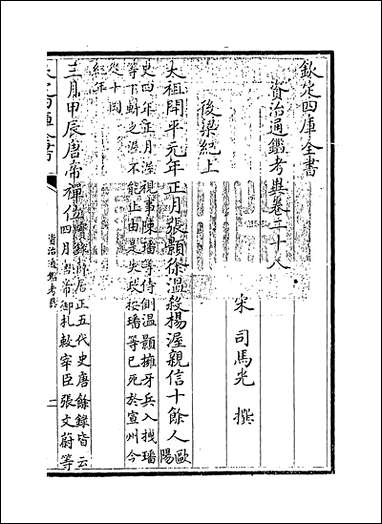 欽定四庫全書
資治通鑑考異卷二十八
宋 司馬光 撰
後梁紀上
太祖開平元年正月張顥徐溫殺楊渥親信十餘人歐陽
史四年正月渥視事陳璠等侍側溫顥擁牙兵入拽璠
等下斬之渥不能止由是失政按璠等已死於宣州今
從十國
紀年
三月甲辰唐帝禪位 薛居正五代史唐餘錄皆云
四月唐帝御札敕宰臣張文蔚等
欽定四庫全書
資治通鑑考異